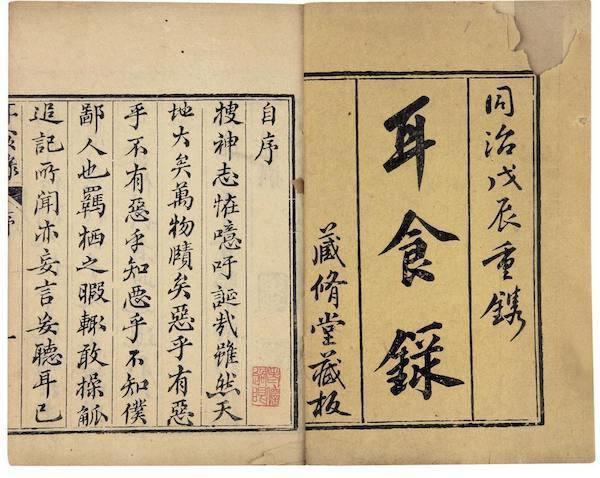 同治戊辰重鐫
耳食錄
藏脩堂藏板
自序
搜神志恠噫吁誕哉雖然天
地大矣萬物賾矣惡乎有惡
乎不有惡乎知惡乎不知僕
鄙人也羈栖之暇輙敢操觚
追記所聞亦妄言妄聽耳已
耳食錄 序 一